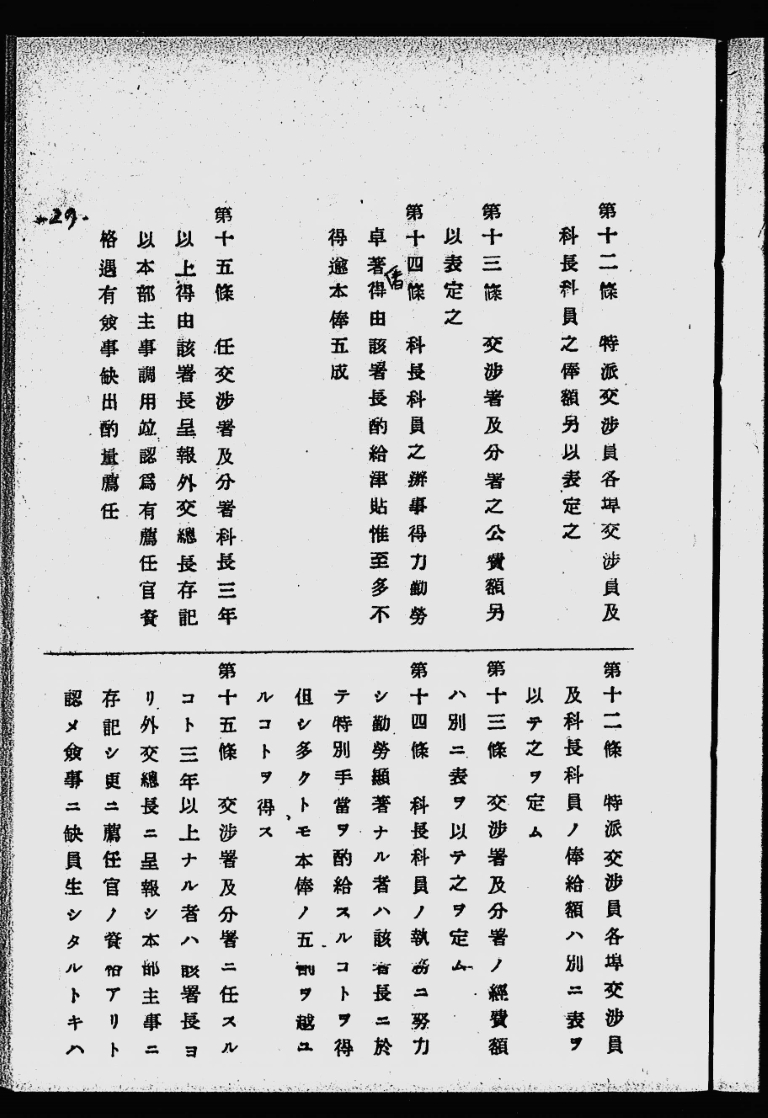 第十二條　特派交涉員各埠交涉員及
科長科員之俸額另以表定之
第十三條　交涉署及分署之公費額另
以表定之
第十四條　科長科員之辦事得力勤勞
卓著得由該署長酌給津貼惟至多不
得逾本俸五成
第十五條　任交涉署及分署科長三年
以上得由該署長呈報外交總長存記
以本部主事調用竝認爲有薦任官資
格遇有僉事缺出酌量薦任
-29-
第十二條　特派交涉員各埠交涉員
及科長科員ノ俸給額ハ別ニ表ヲ
以テ之ヲ定ム
第十三條　交涉署及分署ノ經費額
ハ別ニ表ヲ以テ之ヲ定ム
第十四條　科長科員ノ執務ニ努力
シ勤勞顯著ナル者ハ該署長ニ於
テ特別手當ヲ酌給スルコトヲ得
但シ多クトモ本俸ノ五割ヲ越ユ
ルコトヲ得ス
第十五條　交涉署及分署ニ任スル
コト三年以上ナル者ハ該署長ヨ
リ外交總長ニ呈報シ本部主事ニ
存記シ更ニ薦任官ノ資格アリト
認メ僉事ニ缺員生シタルトキハ